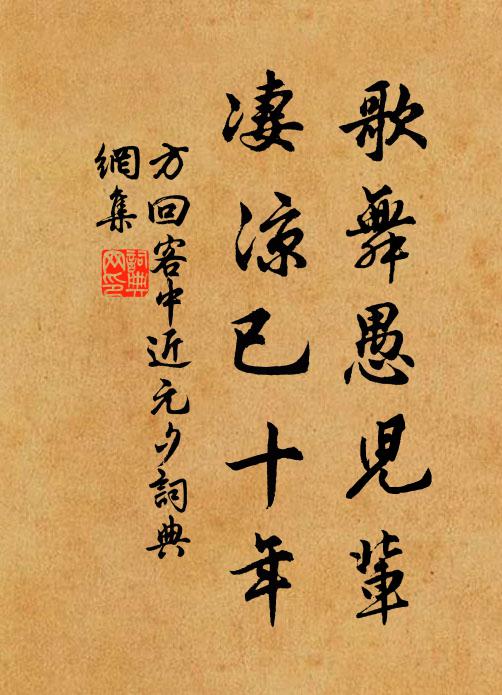 歌舞愚兒輩
凄涼已十年
方回客中近元夕詞典
網集
詞典網印